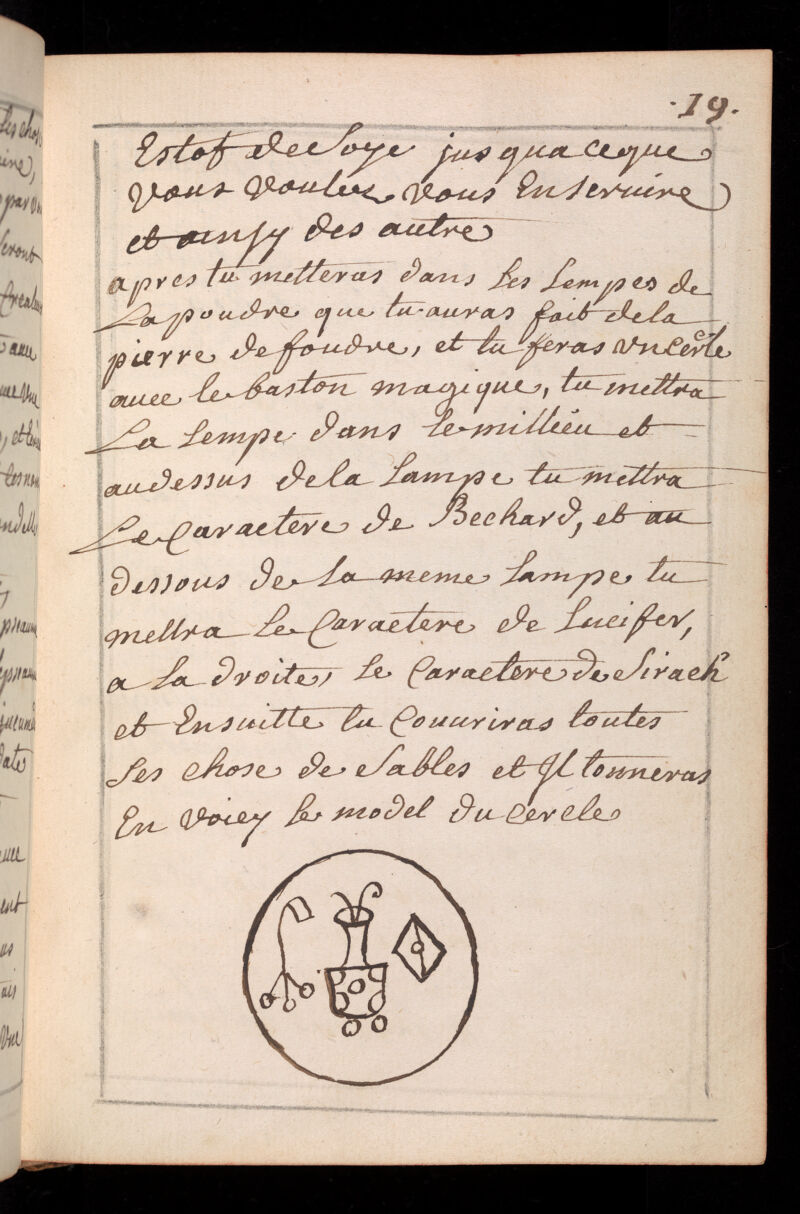 .19.
Estof de Soye jusqua ceque
vous voulez vous En servire
et ainsy des autre
apres tu metteras dans les Lempes de
La poudre que tu auras fait dela
pierre de foudre, et tu feras un cercle
avec le baston magique, tu mettra
La Lempe dans le millieu et
au dessus dela Lampe tu mettra
Le Caractere de Bechard, et au
dessous de la meme Lampe tu
mettra le Caractere de Lucifer,
a la droite, le Caractere de Sirach
et Ensuitte tu Couuriras toutes
Ses chose de Sables et Jl tonneras
En voicy le model du cercle